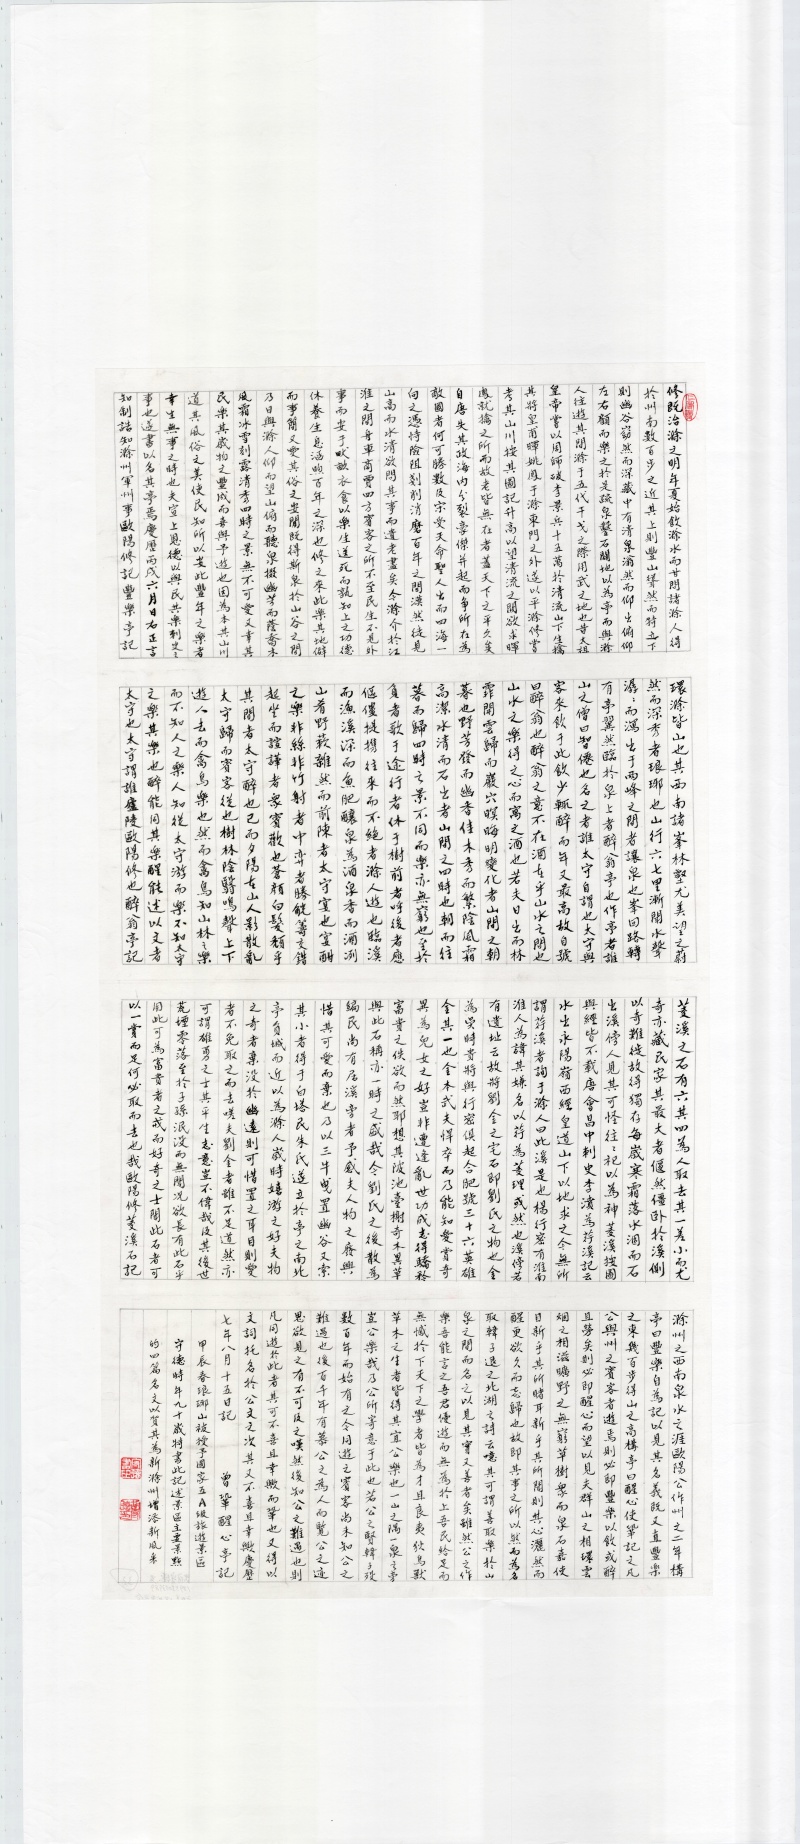 修既治滁之明年夏始飲滁水而甘問諸滁人得
於州南數百步之近其上則豐山聳然而特立下
則幽谷窈然而深藏中有清泉滃然而仰出俯仰
左右顧而樂之於是疏泉鑿石闢地以為亭而與滁
人往遊其間滁于五代干戈之際用武之地也昔太祖
皇帝嘗以周師破李景兵十五萬於清流山下生擒
其將皇甫暉姚鳳于滁東門之外遂以平滁修嘗
考其山川按其圖記升高以望清流之關欲求暉
鳳就擒之所而故老皆無在者蓋天下之平久矣
自唐失其政海內分裂豪傑并起而爭所在為
敵國者何可勝數及宋受天命聖人出而四海一
向之憑恃險阻剗削消磨百年之間漠然徒見
山高而水清欲問其事而遺老盡矣今滁介於江
淮之間舟車商賈四方賓客之所不至民生不見外
事而安于畎畝衣食以樂生送死而孰知上之功德
休養生息涵煦百年之深也修之來此樂其地僻
而事簡又愛其俗之安閒既得斯泉於山谷之間
乃日與滁人仰而望山俯而聽泉掇幽芳而蔭喬木
風霜冰雪刻露清秀四時之景無不可愛又幸其
民樂其歲物之豐成而喜與予遊也因為本其山川
道其風俗之美使民知所以安此豐年之樂者
幸生無事之時也夫宣上恩德以與民共樂刺史之
事也遂書以名其亭焉慶曆丙戌六月日右正言
知制誥知滁州軍州事歐陽修記豐樂亭記
環滁皆山也其西南諸峯林壑尤美望之蔚
然而深秀者琅琊也山行六七里漸聞水聲
潺潺而瀉出于兩峰之間者讓泉也峯回路轉
有亭翼然臨於泉上者醉翁亭也作亭者誰
山之僧曰智僊也名之者誰太守自謂也太守與
客來飲于此飲少輒醉而年又最高故自號
曰醉翁也醉翁之意不在酒在乎山水之間也
山水之樂得之心而寓之酒也若夫日出而林
霏開雲歸而巖穴暝晦明變化者山間之朝
暮也野芳發而幽香佳木秀而繁陰風霜
高潔水清而石出者山間之四時也朝而往
暮而歸四時之景不同而樂亦無窮也至於
負者歌于途行者休于樹前者呼後者應
傴僂提攜往來而不絕者滁人遊也臨溪
而漁溪深而魚肥釀泉為酒泉香而酒洌
山肴野蔌雜然而前陳者太守宴也宴酣
之樂非絲非竹射者中弈者勝觥籌交錯
起坐而諠譁者眾賓歡也蒼顏白髮頹乎
其間者太守醉也已而夕陽在山人影散亂
太守歸而賓客從也樹林陰翳鳴聲上下
遊人去而禽鳥樂也然而禽鳥知山林之樂
而不知人之樂人知從太守游而樂不知太守
之樂其樂也醉能同其樂醒能述以文者
太守也太守謂誰廬陵歐陽修也醉翁亭記
菱溪之石有六其四為人取去其一差小而尤
奇亦藏民家其最大者偃然僵卧於溪側
以奇難徙故得獨存每歲寒霜落水涸而石
出溪傍人見其可怪往往祀以為神菱溪按圖
與經皆不載唐會昌中刺史李濆為荇溪記云
水出永陽嶺西經皇道山下以地求之今無所
謂荇溪者詢于滁人曰此溪是也楊行密有淮南
淮人為諱其嫌名以荇為菱理或然也溪傍若
有遺址云故將劉金之宅石即劉氏之物也金
為吳時貴將與行密俱起合肥號三十六英雄
金其一也金本武夫悍卒而乃能知愛賞奇
異為兒女之好豈非遭逢亂世功成志得驕於
富貴之佚欲而然耶想其陂池臺榭奇木異草
與此石稱亦一時之盛哉今劉氏之後散為
編民尚有居溪旁者予感夫人物之廢興
惜其可愛而棄也乃以三牛曳置幽谷又索
其小者得于白塔民朱氏遂立於亭之南北
亭負城而近以為滁人歲時嬉游之好夫物
之奇者棄沒於幽遠則可惜置之耳目則愛
者不免取之而去嗟夫劉金者雖不足道然亦
可謂雄勇之士其平生志意豈不偉哉及其後世
荒堙零落至於子孫泯沒而無聞況欲長有此石乎
用此可為富貴者之戒而好奇之士聞此石者可
以一賞而足何必取而去也哉歐陽修菱溪石記
滁州之西南泉水之涯歐陽公作州之二年構
亭曰豐樂自為記以見其名義既又直豐樂
之東幾百步得山之高構亭曰醒心使鞏記之凡
公與州之賓客者遊焉則必即豐樂以飲或醉
且勞矣則必即醒心而望以見夫群山之相環雲
烟之相滋曠野之無窮草樹眾而泉石嘉使
目新乎其所睹耳新乎其所聞則其心灑然而
醒更欲久而忘歸也故即其事之所以然而為名
取韓子退之北湖之詩云噫其可謂善取樂於山
泉之間而名之以見其實又善者矣雖然公之作
樂吾能言之吾君優遊而無為於上吾民給足而
無憾於下天下之學者皆為才且良夷狄鳥獸
草木之生者皆得其宜公樂也一山之隅一泉之旁
豈公樂哉乃公所寄意于此也若公之賢韓子歿
數百年而始有之今同遊之賓客尚未知公之
難遇也後百千年有慕公之為人而覽公之迹
思欲見之有不可及之嘆然後知公之難遇也則
凡同遊於此者其可不喜且幸歟而鞏也又得以
文詞托名於公文之次其又不喜且幸歟慶歷
七年八月十五日記　曾鞏醒心亭記
甲辰春琅琊山被授予國家五A級旅遊景區
守德時年九十歲特書此記述景區主要景點
的四篇名文以賀其為新滁州增添新風采